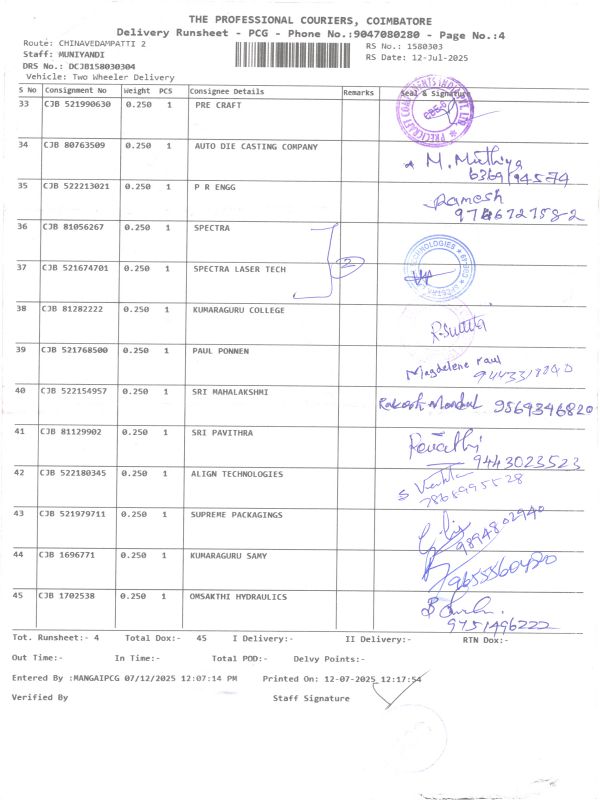 THE PROFESSIONAL COURIERS, COIMBATORE
Delivery Runsheet - PCG - Phone No.:9047080280 - Page No.:4
Route: CHINAVEDAMPATTI 2
RS No.: 1580303
Staff: MUNIYANDI
RS Date: 12-Jul-2025
DRS No.: DCJB158030304
Vehicle: Two Wheeler Delivery
S No Consignment No Weight PCS Consignee Details Remarks Seal & Signature
33 CJB 521990630 0.250 1 PRE CRAFT
34 CJB 80763509 0.250 1 AUTO DIE CASTING COMPANY M. Muthiya
6369194579
35 CJB 522213021 0.250 1 P R ENGG Ramesh
36 CJB 81056267 0.250 1 SPECTRA
2
37 CJB 521674701 0.250 1 SPECTRA LASER TECH
38 CJB 81282222 0.250 1 KUMARAGURU COLLEGE
39 CJB 521768500 0.250 1 PAUL PONNEN Magdelene Paul
40 CJB 522154957 0.250 1 SRI MAHALAKSHMI Rakesh Mondal 9569346820
41 CJB 81129902 0.250 1 SRI PAVITHRA Revathi
9443023523
42 CJB 522180345 0.250 1 ALIGN TECHNOLOGIES
43 CJB 521979711 0.250 1 SUPREME PACKAGINGS
9894802940
44 CJB 1696771 0.250 1 KUMARAGURU SAMY
9655560480
45 CJB 1702538 0.250 1 OMSAKTHI HYDRAULICS
9751496222
Tot. Runsheet:- 4 Total Dox:- 45 I Delivery:- II Delivery:- RTN Dox:-
Out Time:- In Time:- Total POD:- Delvy Points:-
Entered By :MANGAIPCG 07/12/2025 12:07:14 PM Printed On: 12-07-2025 12:17:54
Verified By Staff Signature